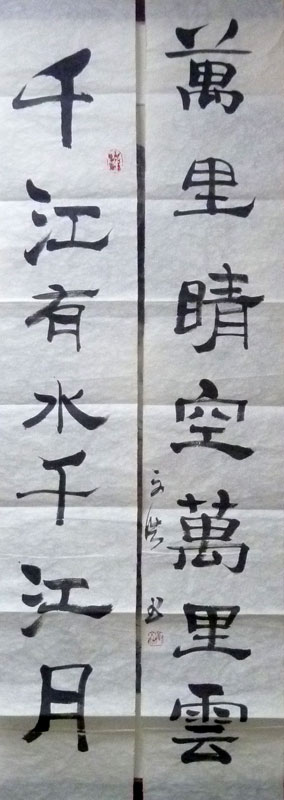 萬里晴空萬里雲
千江有水千江月